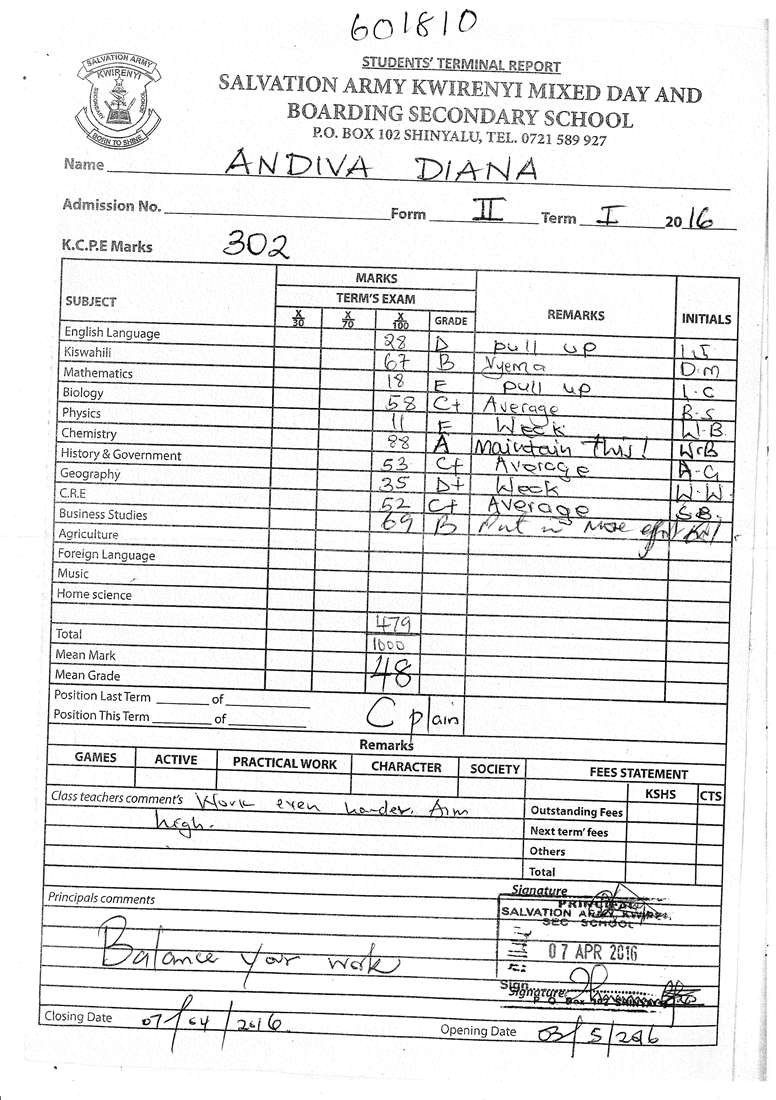 601810
STUDENTS' TERMINAL REPORT
SALVATION ARMY KWIRENYI MIXED DAY AND
BOARDING SECONDARY SCHOOL
P.O. BOX 102 SHINYALU, TEL. 0721 589 927
SALVATION ARMY
KWIRENYI
SECONDARY SCHOOL
BORN TO SHINE
Name ANDIVA DIANA
Admission No. Form II Term I 2016
K.C.P.E Marks 302
SUBJECT MARKS REMARKS INITIALS
TERM'S EXAM
X/30 X/70 X/100 GRADE
English Language 28 D pull up
Kiswahili 67 B Vyema D.M
Mathematics 18 E pull up I.C
Biology 58 C+ Average B.S
Physics 11 E Week W.B
Chemistry 88 A Maintain This! W.B
History & Government 53 C+ Average A.G
Geography 35 D+ Week W.W.
C.R.E 52 C+ Average S.B.
Business Studies 69 B Put in more effort
Agriculture
Foreign Language
Music
Home science
479
Total 1000
Mean Mark 48
Mean Grade
Position Last Term of
Position This Term of C plain
Remarks
GAMES ACTIVE PRACTICAL WORK CHARACTER SOCIETY FEES STATEMENT
KSHS CTS
Class teachers comment's Work even harder. Aim
high.
Outstanding Fees
Next term' fees
Others
Total
Signature
Principals comments
Balance your work
PRINCIPAL
SALVATION ARMY KWIRE.
SEC SCHOOL
07 APR 2016
Sign
Signature
P. O. Box 102 SHINYALU
Closing Date 07/04/2016.
Opening Date 03/5/2016